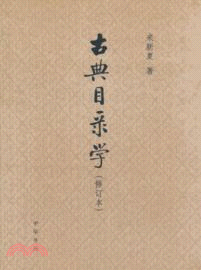 来新夏 著
古典目录学
(修订本)
中华书局